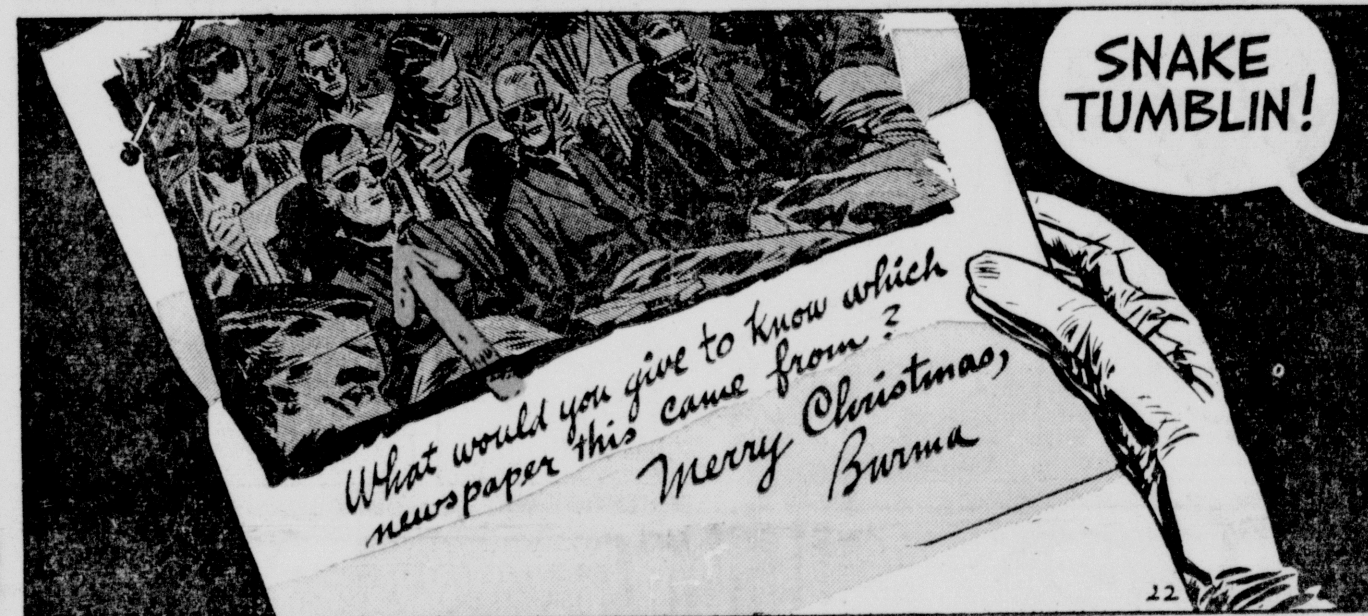 SNAKE
TUMBLIN!
What would you give to know which
newspaper this came from?
Merry Christmas,
Burma
22